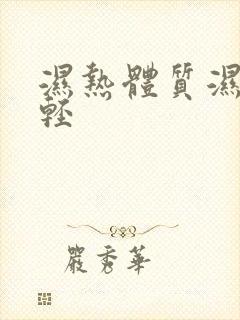 濕熱體質濕
輕
嚴秀華